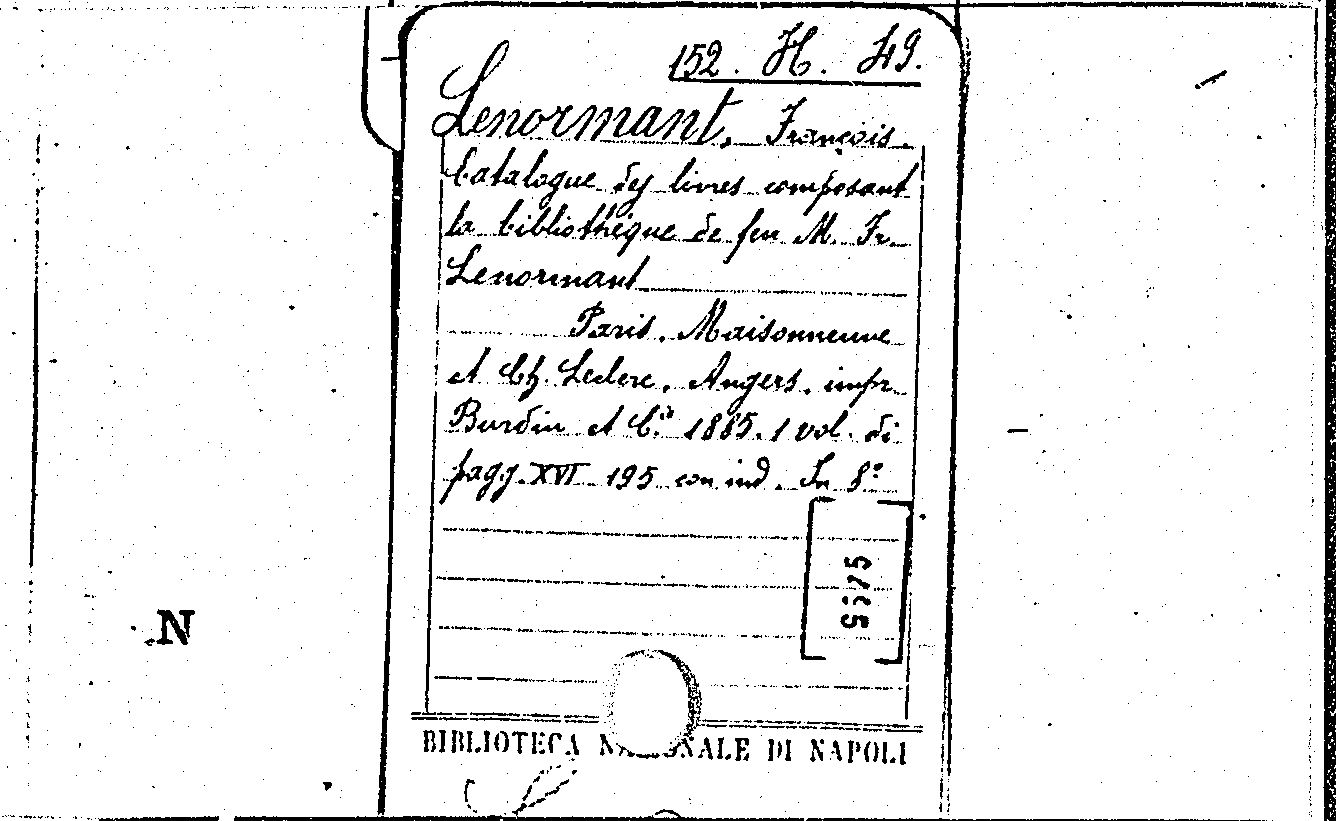 152. H. 49.
Lenormant, François.
Catalogue des livres composant
la bibliothèque de feu M. Fr.
Lenormant
Paris, Maisonneuve
et Ch. Leclerc, Angers, impr.
Burdin et C.ie 1885. 1 vol. di
pagg. XVI 195 con ind. In 8°
N
BIBLIOTECA NAZIONALE DI NAPOLI